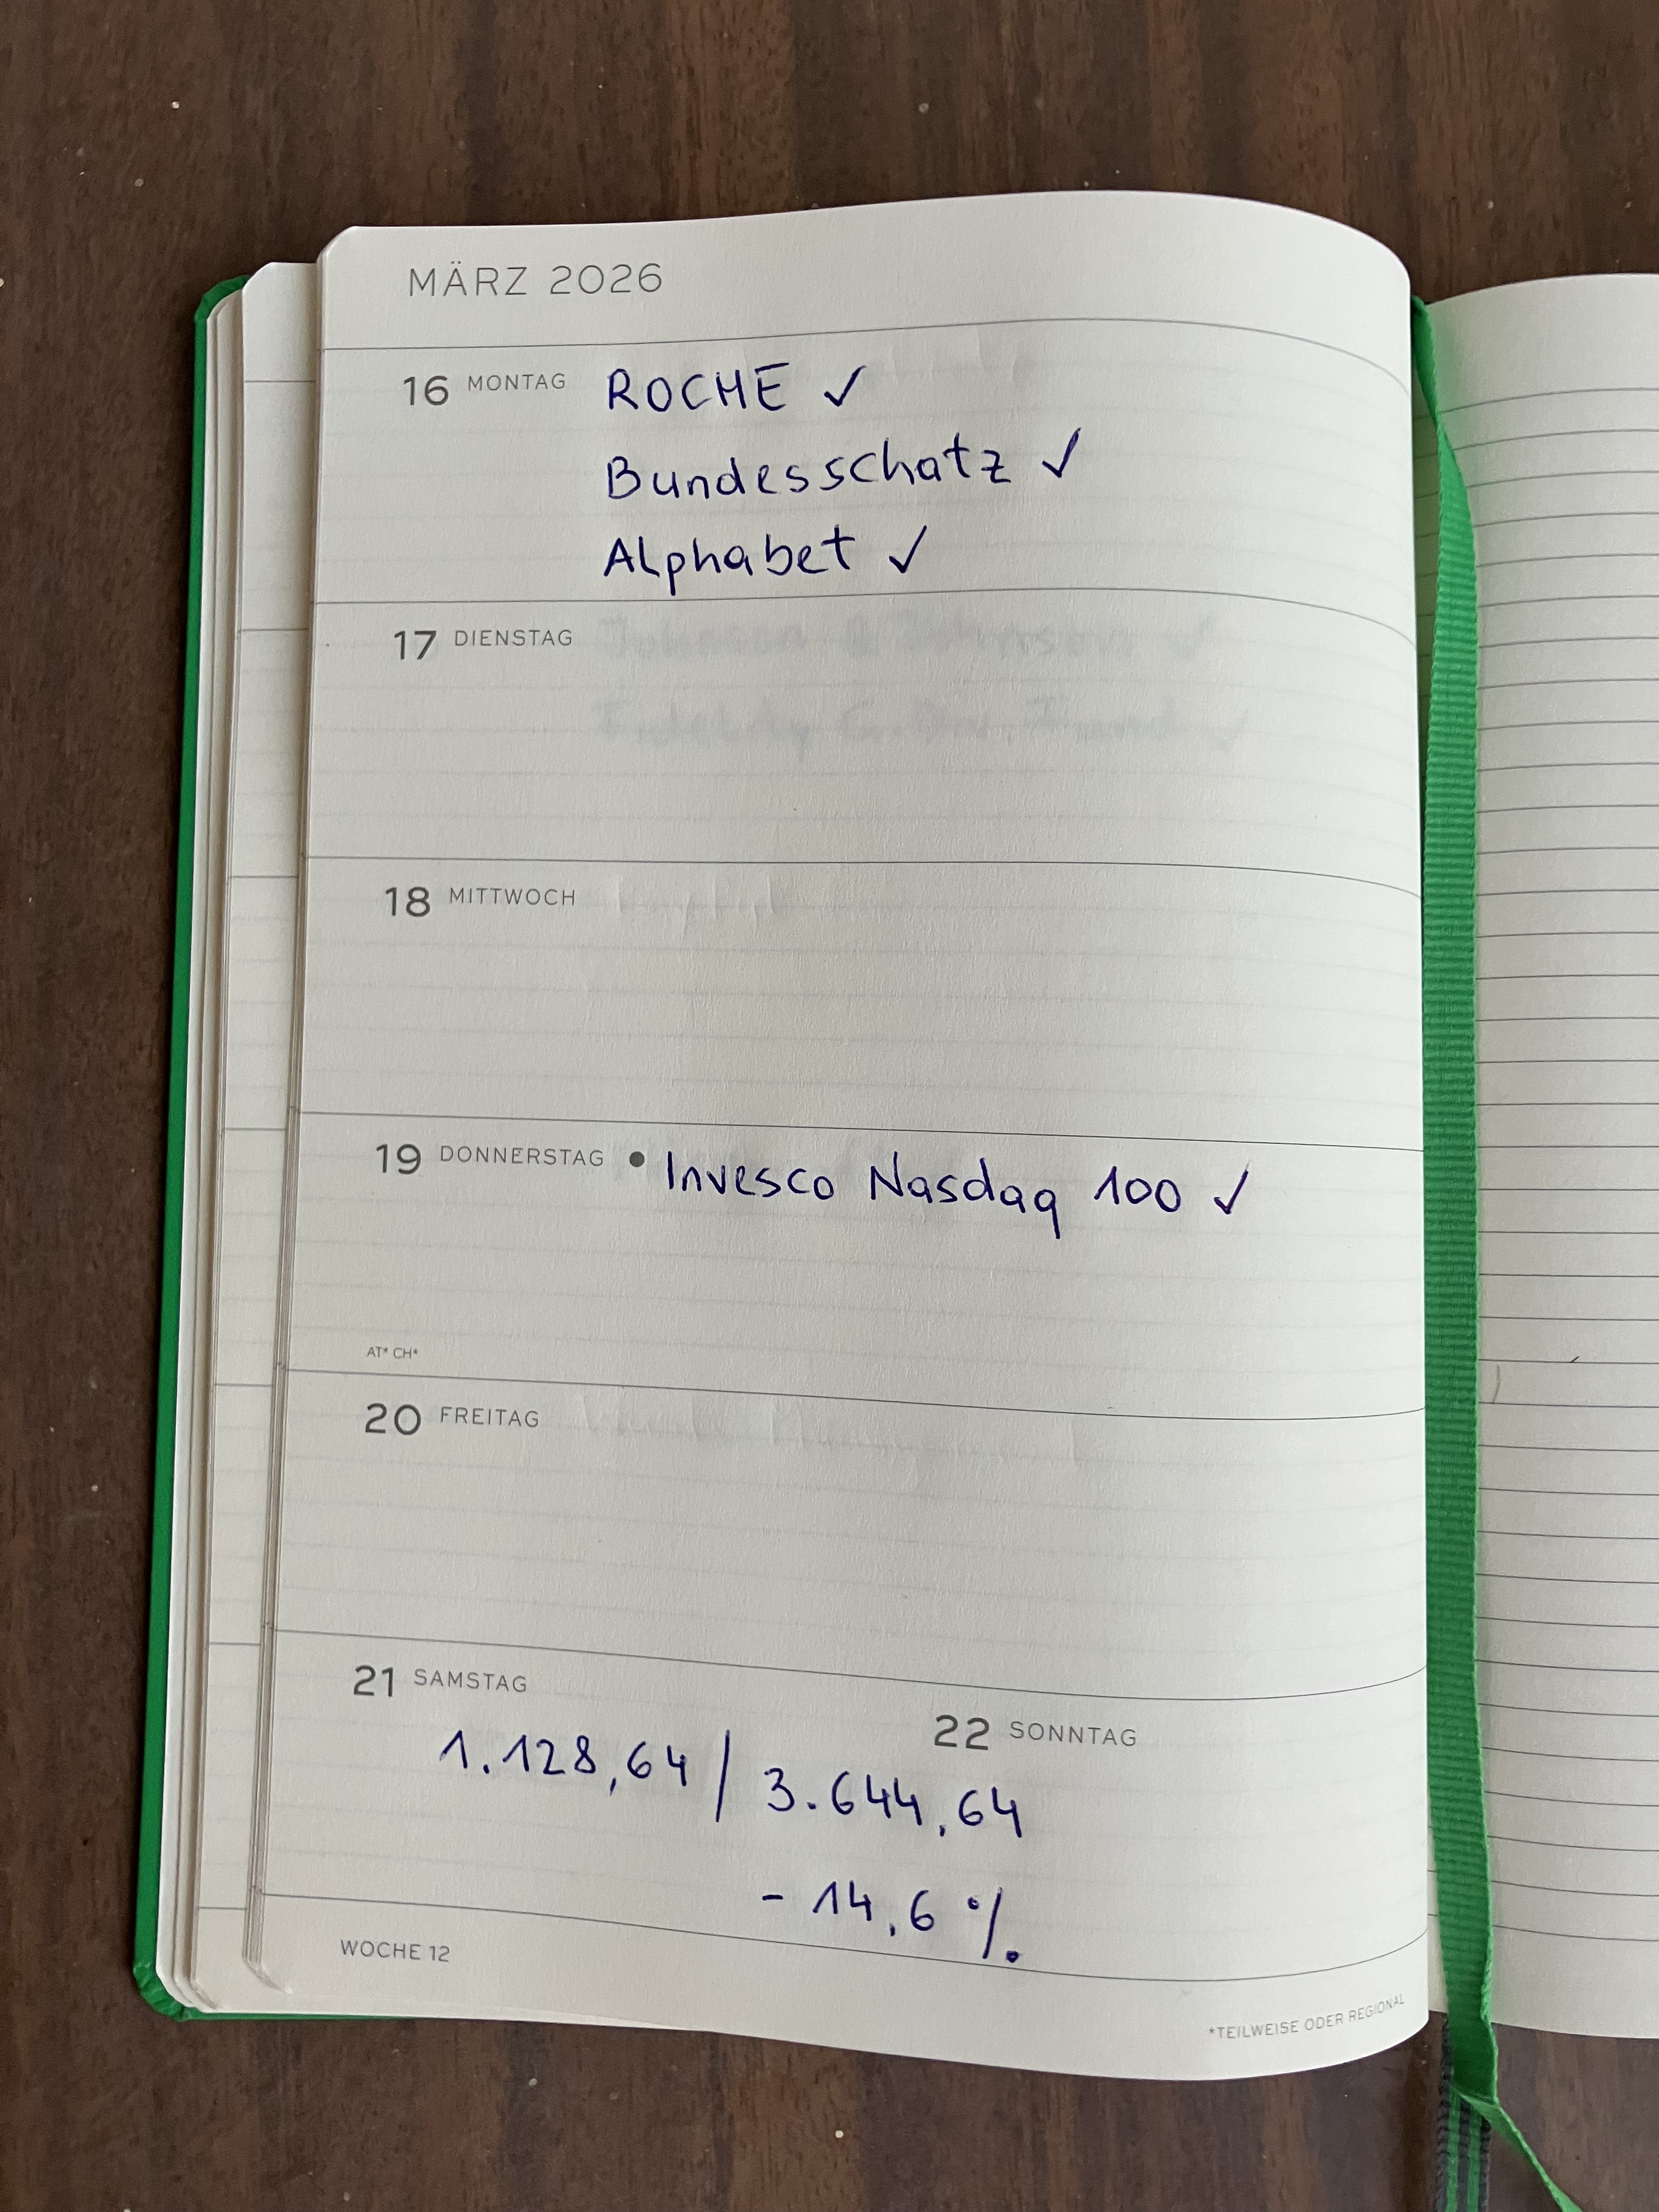 MÄRZ 2026
16 MONTAG ROCHE ✓
Bundesschatz ✓
Alphabet ✓
17 DIENSTAG
18 MITTWOCH
19 DONNERSTAG ● Invesco Nasdaq 100 ✓
AT* CH*
20 FREITAG
21 SAMSTAG
22 SONNTAG
1.128,64 / 3.644,64
- 14,6 %
WOCHE 12
*TEILWEISE ODER REGIONAL